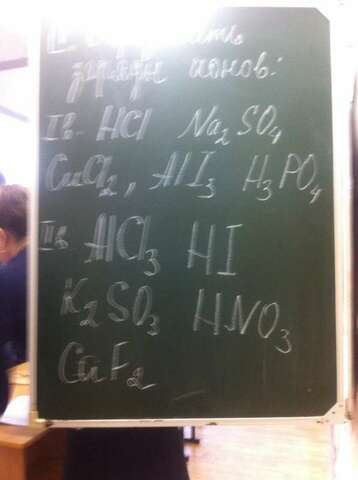 заряды ионов:
Iв. HCl Na₂SO₄
CuCl₂, AlI₃ H₃PO₄
IIв AlCl₃ HI
K₂SO₃ HNO₃
CuF₂